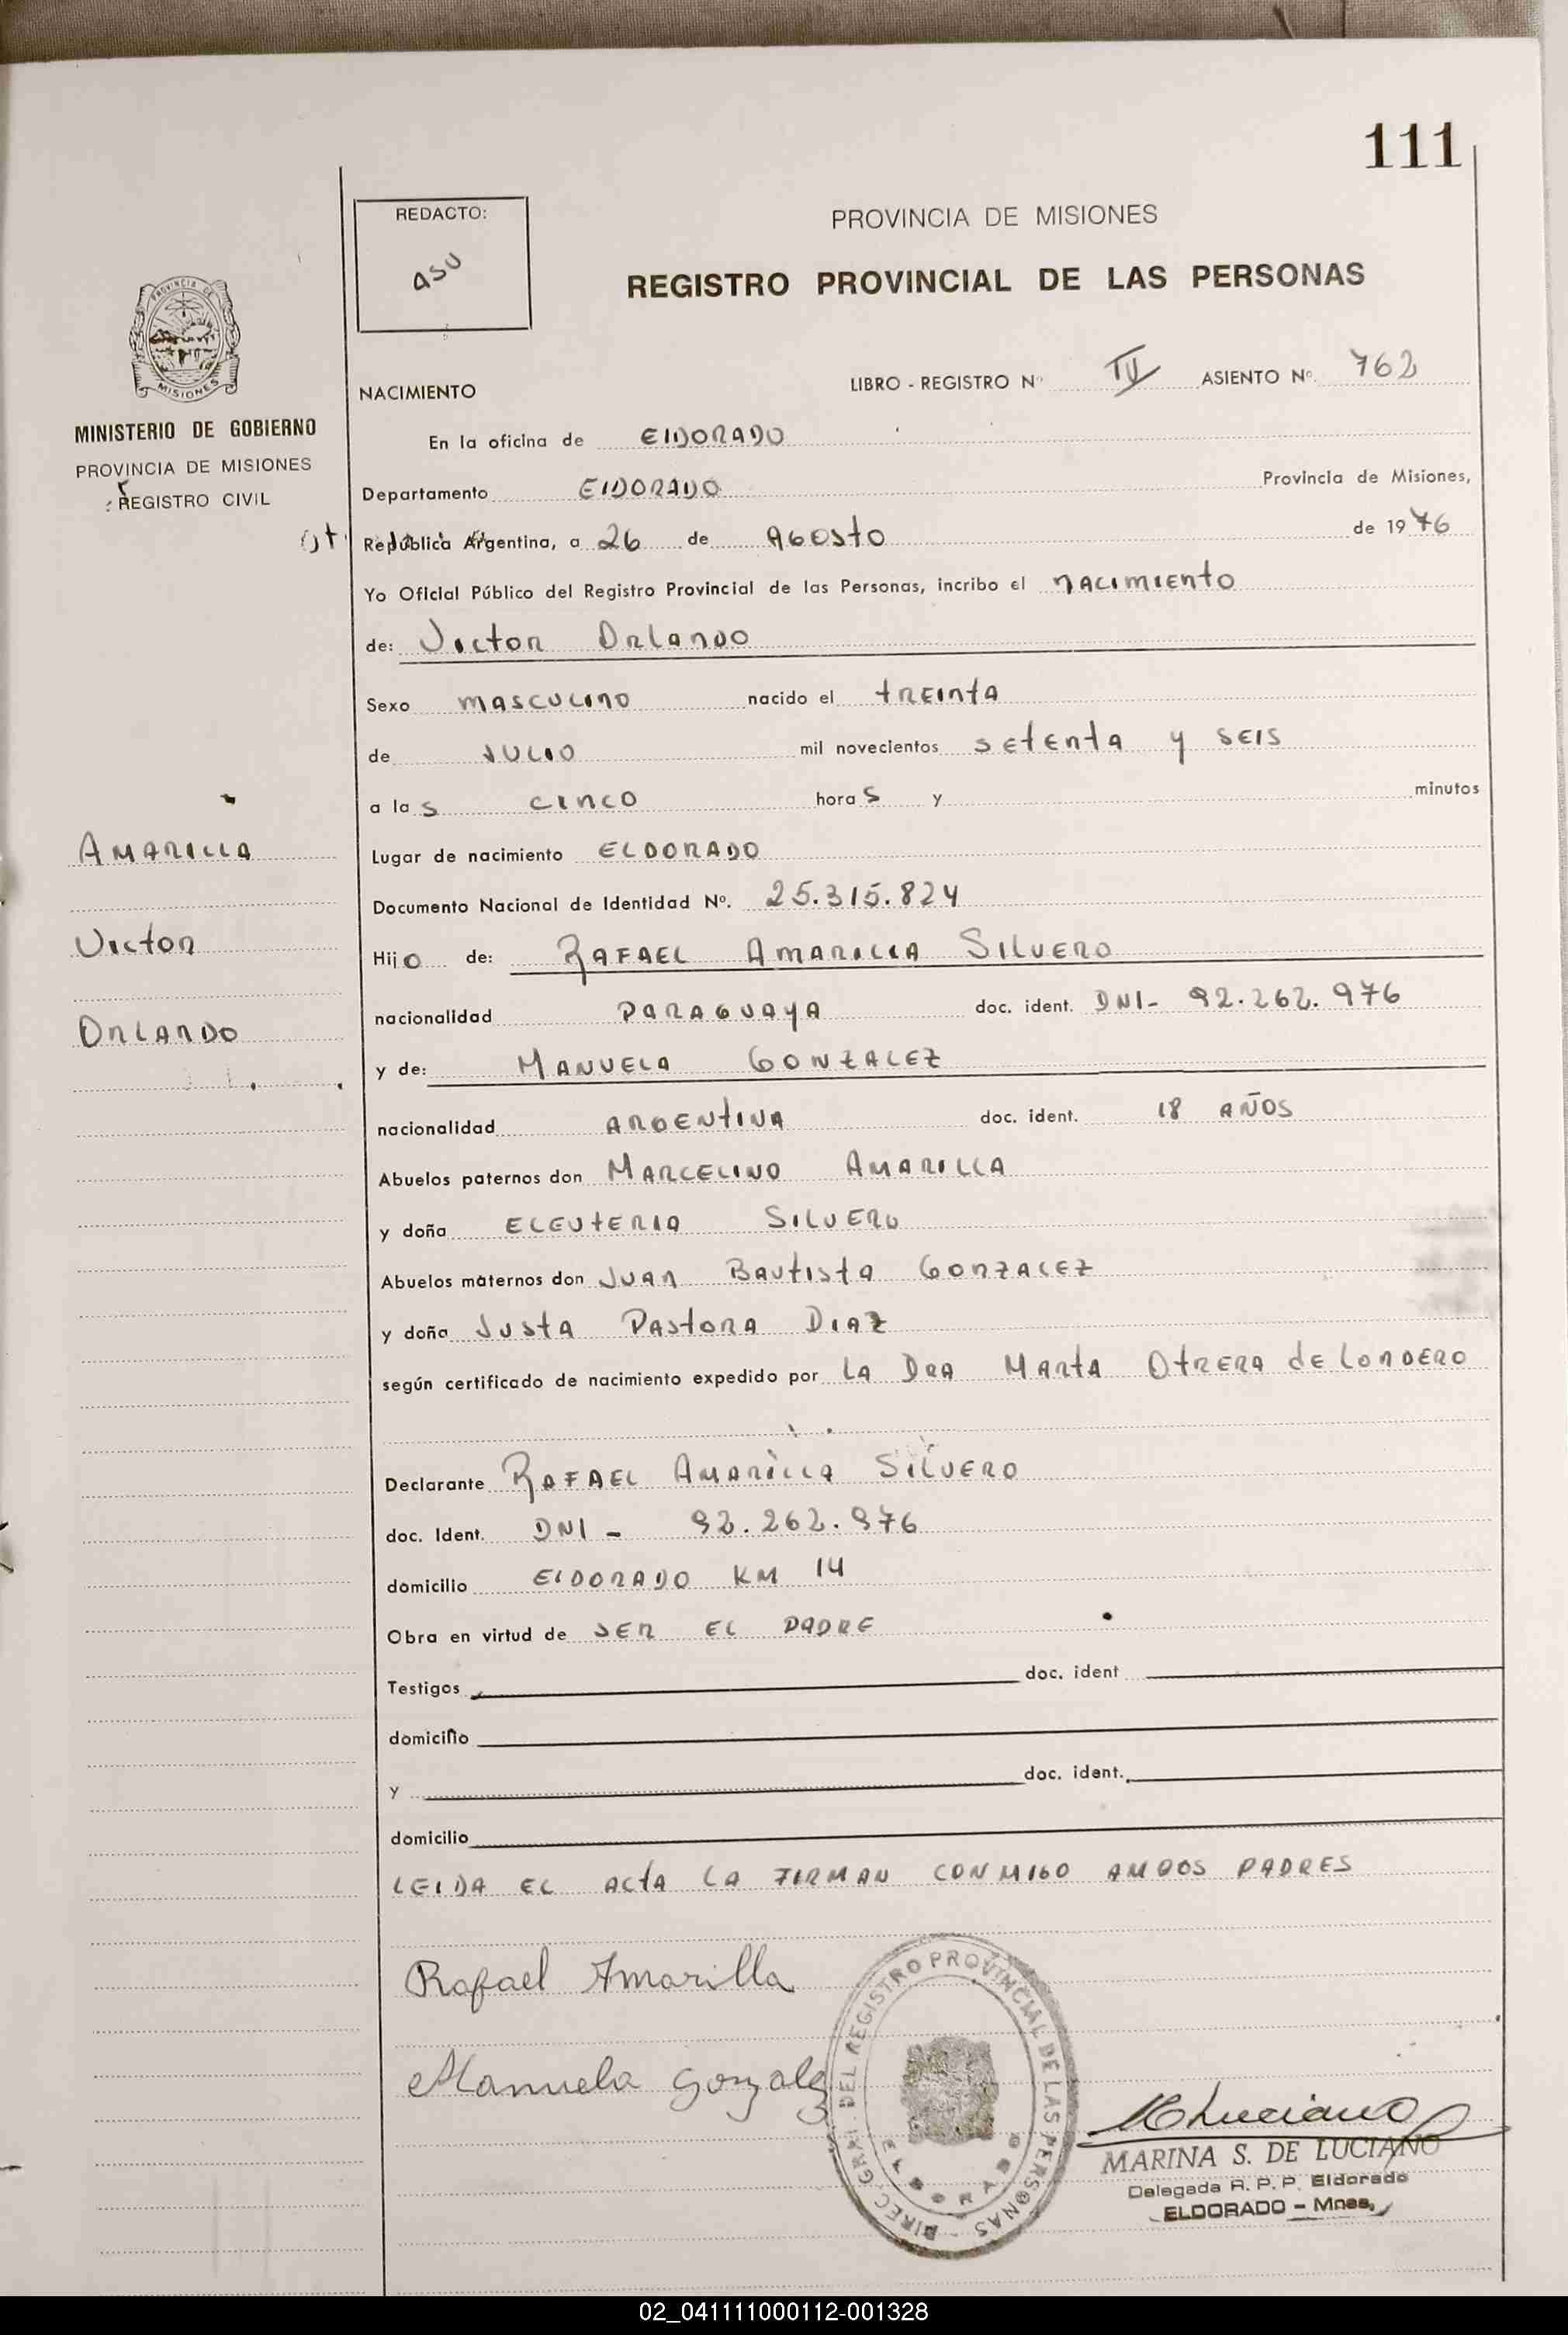 111
REDACTO:
ASU
PROVINCIA DE MISIONES
REGISTRO PROVINCIAL DE LAS PERSONAS
PROVINCIA DE
MISIONES
MINISTERIO DE GOBIERNO
PROVINCIA DE MISIONES
REGISTRO CIVIL
NACIMIENTO
LIBRO - REGISTRO Nº IV ASIENTO Nº 762
En la oficina de ElDORADO
Departamento ElDORADO Provincia de Misiones,
República Argentina, a 26 de AGOSTO de 1976
Yo Oficial Público del Registro Provincial de las Personas, incribo el NACIMIENTO
de: Victor ORLANDO
Sexo MASCULINO nacido el TREINTA
de JULIO mil novecientos SETENTA Y SEIS
a las CINCO horas y minutos
AMARILLA
Lugar de nacimiento ELDORADO
Documento Nacional de Identidad Nº. 25.315.824
Victor
Hijo de: RAFAEL AMARILLA SILVERO
nacionalidad PARAGUAYA doc. ident. DNI- 92.262.976
ORLANDO
y de: MANUELA GONZALEZ
nacionalidad ARGENTINA doc. ident. 18 AÑOS
Abuelos paternos don MARCELINO AMARILLA
y doña ELEUTERIA SILVERO
Abuelos maternos don JUAN BAUTISTA GONZALEZ
y doña JUSTA PASTORA DIAZ
según certificado de nacimiento expedido por LA DRA MARTA OTRERA de LONDERO
Declarante RAFAEL AMARILLA SILVERO
doc. Ident. DNI - 92.262.976
domicilio ElDORADO KM 14
Obra en virtud de SER EL PADRE
Testigos doc. ident
domicilio
y doc. ident.
domicilio
LEIDA EL ACTA LA FIRMAN CONMIGO AMBOS PADRES
Rafael Amarilla
Manuela Gonzalez
DIREC. GRAL. DEL REGISTRO PROVINCIAL DE LAS PERSONAS
ELDORADO
MLuciano
MARINA S. DE LUCIANO
Delegada R. P. P. Eldorado
ELDORADO - Mnes.
02_041111000112-001328